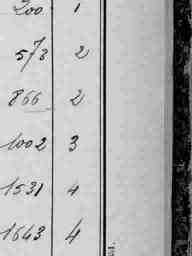 200 1
573 2
866 2
1002 3
1531 4
1643 4